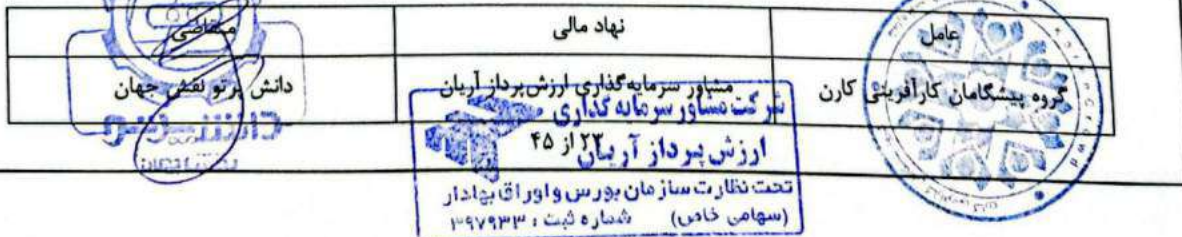 عامل
نهاد مالی
متقاضی
گروه پیشگامان کارآفرینی کارن
مشاور سرمایه‌گذاری ارزش‌پرداز آریان
دانش پرتو نقش جهان
۲۳ از ۴۵
شرکت مشاور سرمایه گذاری
ارزش پرداز آریان
تحت نظارت سازمان بورس و اوراق بهادار
(سهامی خاص) شماره ثبت : ۳۹۷۹۳۳